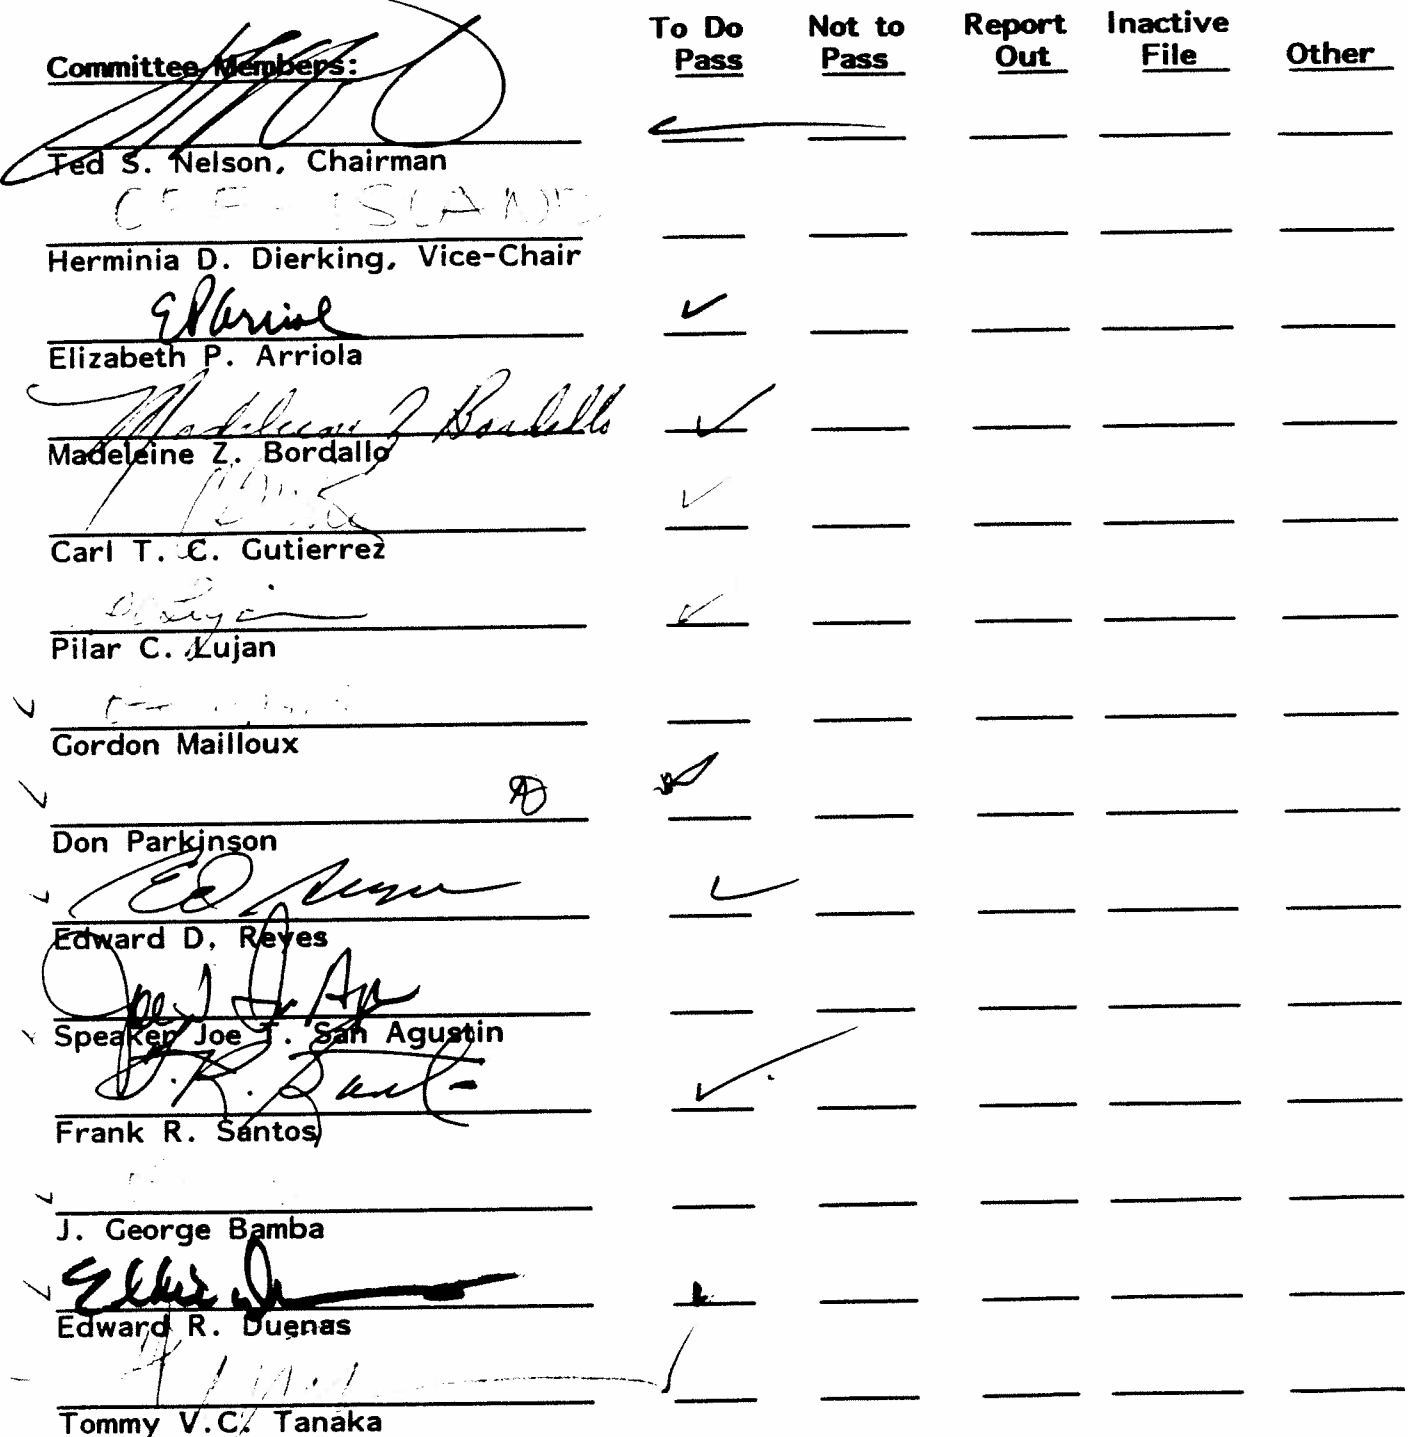 To Do Not to Report Inactive
Committee Members: Pass Pass Out File Other
Ted S. Nelson, Chairman
ISLAND
Herminia D. Dierking, Vice-Chair
EPArriola
Elizabeth P. Arriola
Madeleine Z Bordallo
Madeleine Z. Bordallo
Carl T. C. Gutierrez
Pilar C. Lujan
Gordon Mailloux
Don Parkinson
Ed Reyes
Edward D. Reyes
Speaker Joe T. San Agustin
F. R. Santos
Frank R. Santos
J. George Bamba
Eddie
Edward R. Duenas
Tommy V.C. Tanaka